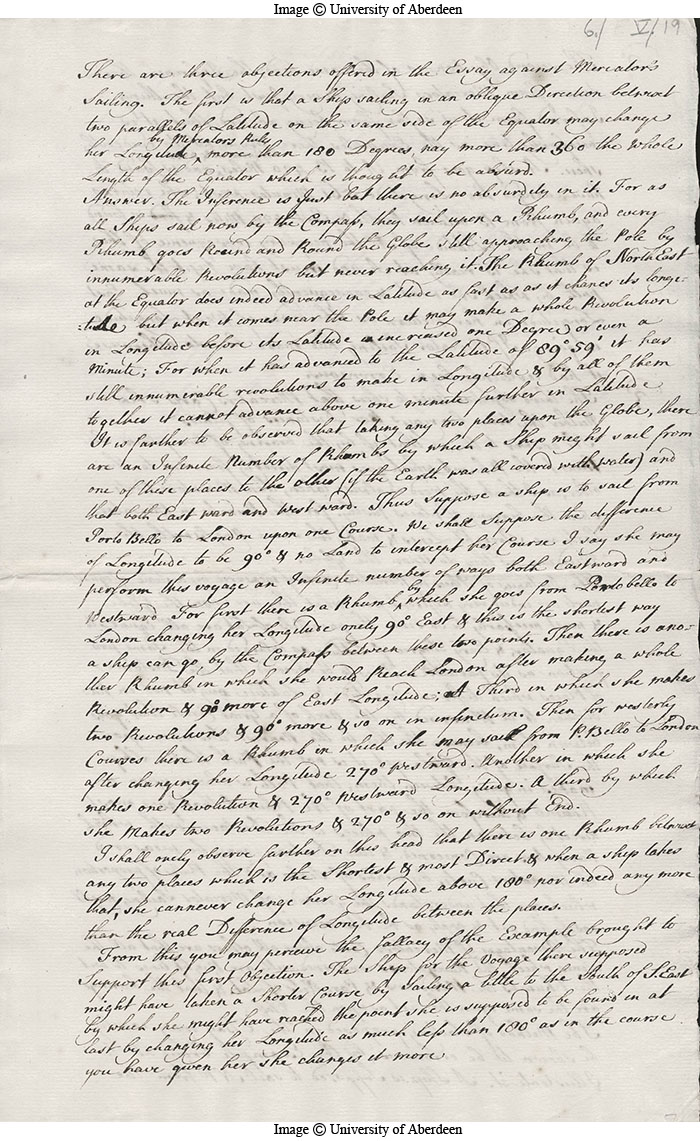 Image © University of Aberdeen
6./ V/19
There are three objections offered in the Essay against Mercator's
Sailing. The first is that a Ship sailing in an oblique Direction betwixt
two parallels of Latitude on the same side of the Equator may change
by Mercators Rule
her Longitude ^ more than 180 Degrees, nay more than 360 the whole
Length of the Equator which is thought to be absurd.
Answer. The Inference is Just but there is no absurdity in it. For as
all Ships sail now by the Compass, they sail upon a Rhumb, and every
Rhumb goes Round and Round the Globe still approaching the Pole by
innumerable Revolutions but never reaching it. The Rhumb of North East
at the Equator does indeed advance in Latitude as fast as as it chanes its longi-
-tude but when it comes near the Pole it may make a whole Revolution
in Longitude before its Latitude is increased one Degree or even a
Minute; For when it has advanced to the Latitude of 89° 59' it has
still innumerable revolutions to make in Longitude & by all of them
together it cannot advance above one minute further in Latitude
It is farther to be observed that taking any two places upon the Globe, there
are an Infinite Number of Rhumbs by which a Ship might sail from
one of these places to the other (if the Earth was all coverd with water) and
that both East ward and west ward. Thus suppose a ship is to sail from
Porto Bello to London upon one Course. We shall suppose the difference
of Longitude to be 90° & no Land to intercept her Course I say she may
perform this voyage an Infinite number of ways both Eastward and
by
westward For first there is a Rhumb ^ which she goes from Portobello to
London changing her Longitude onely 90° East & this is the shortest way
a ship can go, by the Compass between these two points. Then there is ano-
ther Rhumb in which she would Reach London after making a whole
Revolution & 90° more of East Longitude; A Third in which she makes
two Revolutions & 90° more & so on in infinitum. Then for westerly
Courses there is a Rhumb in which she may sail from P. Bello to London
after changing her Longitude 270° westward. Another in which she
makes one Revolution & 270° westward Longitude. A third by which
she Makes two Revolutions & 270° & so on without End.
I shall onely observe farther on this head that there is one Rhumb betwixt
any two places which is the Shortest & most Direct & when a ship takes
that, she cannever change her Longitude above 180° nor indeed any more
than the real Difference of Longitude between the places.
From this you may perceive the fallacy of the Example brought to
Support this first Objection. The Ship for the Voyage there supposed
might have taken a Shorter Course by Sailing a little to the South of S. East
by which she might have rached the point she is supposed to be found in at
last by changing her Longitude as much less than 180° as in the course
you have given her she changes it more
Image © University of Aberdeen